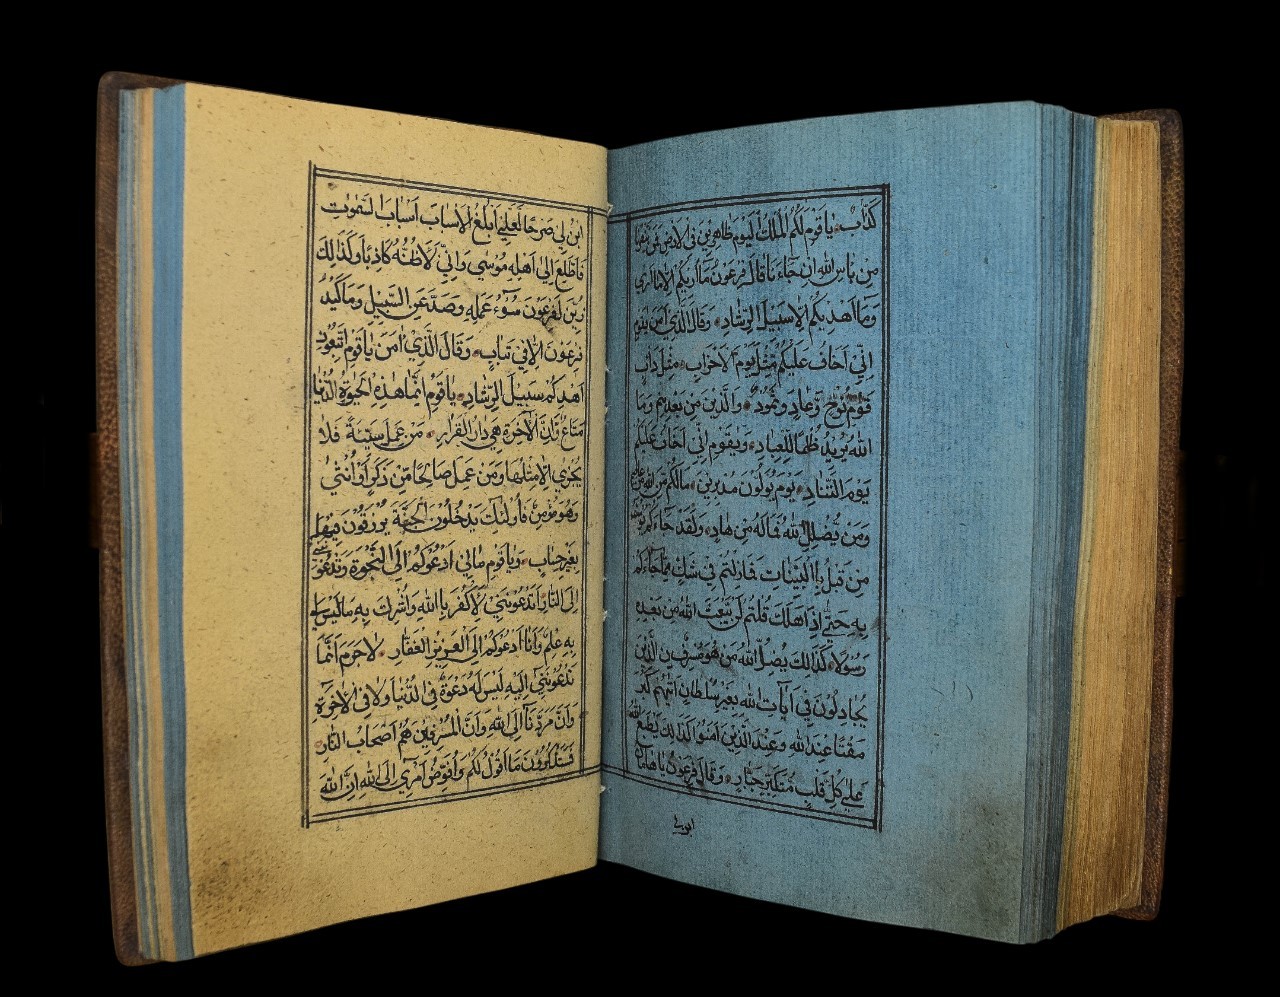 كَذَّابٌ يَا قَوْمِ لَكُمُ الْمُلْكُ الْيَوْمَ ظَاهِرِينَ فِي الْاَرْضِ فَمَنْ يَنْصُرُنَا
مِنْ بَأْسِ اللهِ اِنْ جَاءَنَا قَالَ فِرْعَوْنُ مَا اُرِيكُمْ اِلَّا مَا اَرٰى
وَمَا اَهْدِيكُمْ اِلَّا سَبِيلَ الرَّشَادِ وَقَالَ الَّذِي اٰمَنَ يَا قَوْمِ
اِنِّي اَخَافُ عَلَيْكُمْ مِثْلَ يَوْمِ الْاَحْزَابِ مِثْلَ دَاْبِ
قَوْمِ نُوحٍ وَعَادٍ وَثَمُودَ وَالَّذِينَ مِنْ بَعْدِهِمْ وَمَا
اللهُ يُرِيدُ ظُلْمًا لِلْعِبَادِ وَيٰقَوْمِ اِنِّي اَخَافُ عَلَيْكُمْ
يَوْمَ التَّنَادِ يَوْمَ تُوَلُّونَ مُدْبِرِينَ مَالَكُمْ مِنَ اللهِ مِنْ عَاصِمٍ
وَمَنْ يُضْلِلِ اللهُ فَمَا لَهُ مِنْ هَادٍ وَلَقَدْ جَاءَكُمْ يُوسُفُ
مِنْ قَبْلُ بِاالْبَيِّنَاتِ فَمَا زِلْتُمْ فِي شَكٍّ مِمَّا جَاءَكُمْ
بِهِ حَتّٰى اِذَا هَلَكَ قُلْتُمْ لَنْ يَبْعَثَ اللهُ مِنْ بَعْدِهِ
رَسُولًا كَذَالِكَ يُضِلُّ اللهُ مَنْ هُوَ مُسْرِفٌ الَّذِينَ
يُجَادِلُونَ فِي اٰيَاتِ اللهِ بِغَيْرِ سُلْطَانٍ اَتٰيهُمْ كَبُرَ
مَقْتًا عِنْدَ اللهِ وَعِنْدَ الَّذِينَ اٰمَنُوا كَذَالِكَ يَطْبَعُ اللهُ
عَلٰى كُلِّ قَلْبِ مُتَكَبِّرٍ جَبَّارٍ وَقَالَ فِرْعَوْنُ يَا هَامَانُ
ابن لي
ابْنِ لِي صَرْحًا لَعَلِّي اَبْلُغُ الْاَسْبَابَ اَسْبَابَ السَّمٰوَاتِ
فَاَطَّلِعَ اِلٰى اِلٰهِ مُوسٰى وَاِنِّي لَاَظُنُّهُ كَاذِبًا وَكَذَالِكَ
زُيِّنَ لِفِرْعَوْنَ سُوٓءُ عَمَلِهِ وَصُدَّ عَنِ السَّبِيلِ وَمَا كَيْدُ
فِرْعَوْنَ اِلَّا فِي تَبَابٍ وَقَالَ الَّذِي اٰمَنَ يَا قَوْمِ اتَّبِعُونِ
اَهْدِكُمْ سَبِيلَ الرَّشَادِ يَا قَوْمِ اِنَّمَا هٰذِهِ الْحَيٰوةُ الدُّنْيَا
مَتَاعٌ وَاِنَّ الْاٰخِرَةَ هِيَ دَارُ الْقَرَارِ مَنْ عَمِلَ سَيِّئَةً فَلَا
يُجْزٰى اِلَّا مِثْلَهَا وَمَنْ عَمِلَ صَالِحًا مِنْ ذَكَرٍ اَوْ اُنْثٰى
وَهُوَ مُؤْمِنٌ فَاُولٰئِكَ يَدْخُلُونَ الْجَنَّةَ يُرْزَقُونَ فِيهَا
بِغَيْرِ حِسَابٍ وَيَا قَوْمِ مَا لِي اَدْعُوكُمْ اِلَى النَّجٰوةِ وَتَدْعُونَنِي
اِلَى النَّارِ تَدْعُونَنِي لِاَكْفُرَ بِااللهِ وَاُشْرِكَ بِهِ مَا لَيْسَ لِي
بِهِ عِلْمٌ وَاَنَا اَدْعُوكُمْ اِلَى الْعَزِيزِ الْغَفَّارِ لَا جَرَمَ اَنَّمَا
تَدْعُونَنِي اِلَيْهِ لَيْسَ لَهُ دَعْوَةٌ فِي الدُّنْيَا وَلَا فِي الْاٰخِرَةِ
وَاَنَّ مَرَدَّنَا اِلَى اللهِ وَاَنَّ الْمُسْرِفِينَ هُمْ اَصْحَابُ النَّارِ
فَسَتَذْكُرُونَ مَا اَقُولُ لَكُمْ وَاُفَوِّضُ اَمْرِي اِلَى اللهِ اِنَّ اللهَ